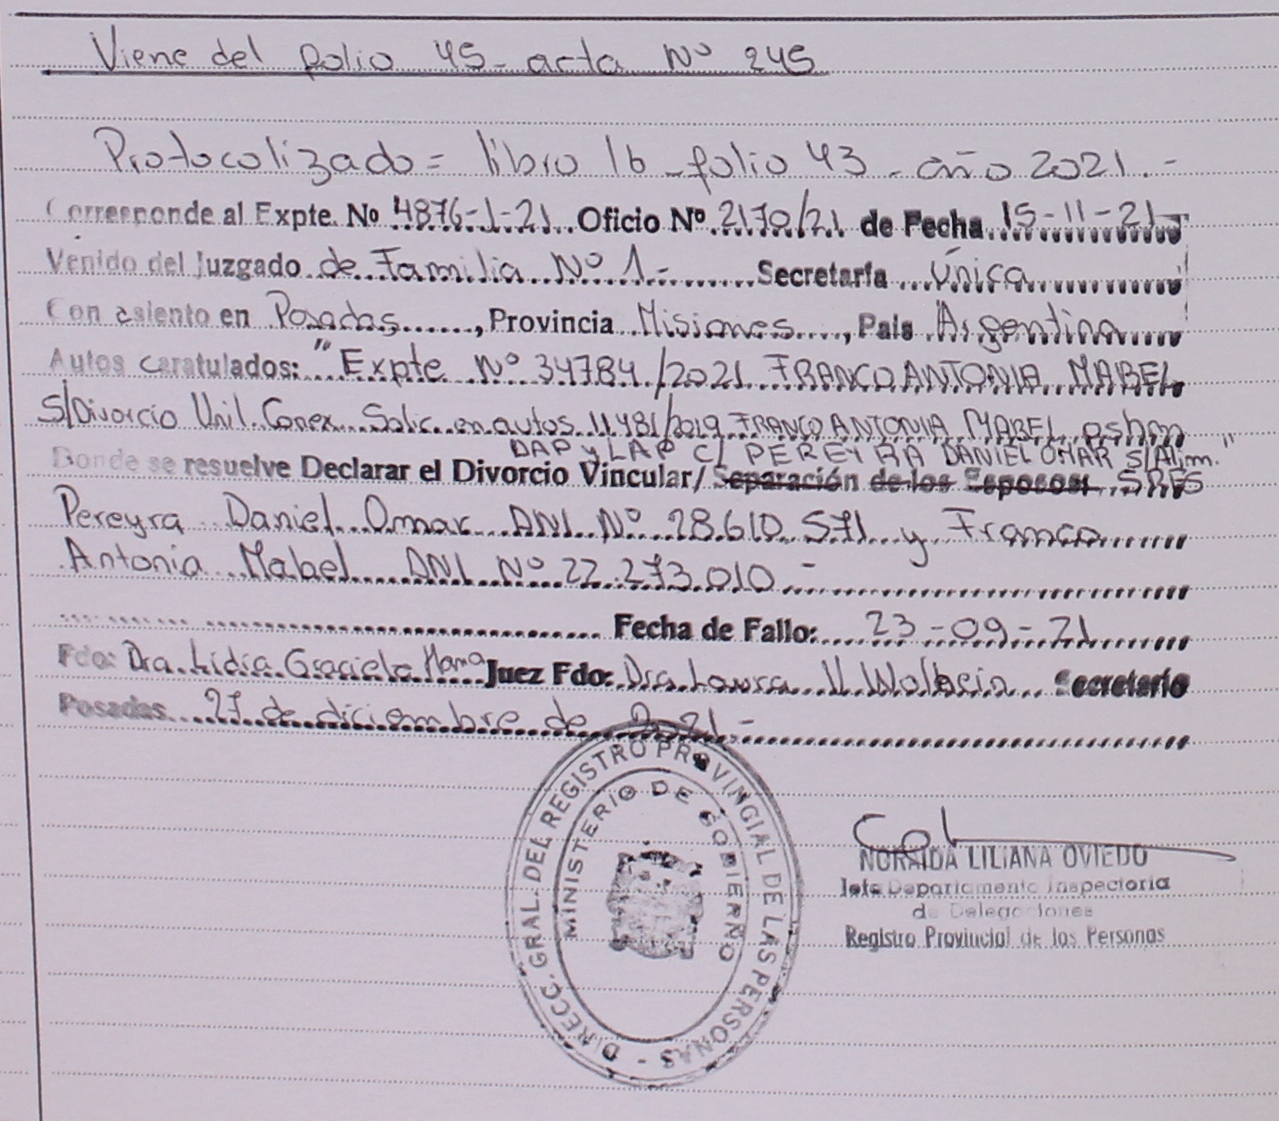 Viene del folio 45- acta Nº 245
Protocolizado= libro 16 -folio 43 - año 2021.-
Corresponde al Expte. Nº 4876-1-21 Oficio Nº 2170/21 de Fecha 15-11-21
Venido del Juzgado de Familia Nº 1.- Secretaría Única
Con asiento en Posadas, Provincia Misiones, País Argentina
Autos caratulados: "Expte Nº 34784/2021 FRANCO ANTONIA MABEL
S/Divorcio Unil. Conex. Solic. en autos 11481/2019 FRANCO ANTONIA MABEL pshm
DAP y LAP C/ PEREYRA DANIEL OMAR S/Alim."
Donde se resuelve Declarar el Divorcio Vincular/ Separación de los Esposos: SRES
Pereyra Daniel Omar DNI Nº 28.610.571 y Franco
Antonia Mabel DNI Nº 22.273.010 -
Fecha de Fallo: 23-09-21
Fdo: Dra. Lidia Graciela Juez Fdo: Dra. Laura V. Secretario
Posadas 27 de diciembre de 2021-
DIRECC. GRAL. DEL REGISTRO PROVINCIAL DE LAS PERSONAS -
MINISTERIO DE GOBIERNO
NORAIDA LILIANA OVIEDO
Jefe Departamento Inspectoria
de Delegaciones
Registro Provincial de las Personas